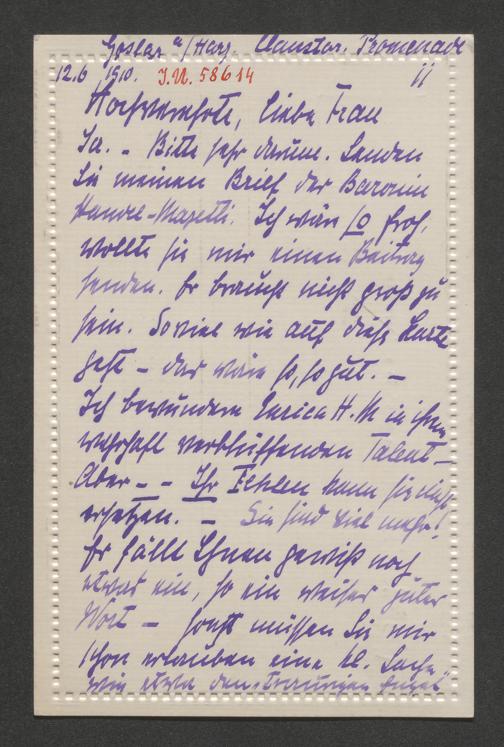 Goslar a/Harz. Claustor. Promenade
12.6. 1910. I.N. 58614 11
Hochverehrte, liebe Frau
Ja. – Bitte sehr darum. Senden
Sie meinen Brief der Baronin
Handel-Mazetti. Ich wär so froh,
wollte sie mir einen Beitrag
senden. Er braucht nicht groß zu
sein. Soviel wie auf diese Karte
geht – das wäre so, so gut. –
Ich bewundere Enrica H. M in ihrem
wahrhaft verblüffenden Talent –
Aber – – Ihr Fehlen kann sie nicht
ersetzen. – Sie sind viel mehr!
Er fällt Ihnen gewiß noch
etwas ein, so ein weises gutes
Wort – sonst müssen Sie mir
schon erlauben eine kl. Sache
wie etwa den „traurigen Engel“